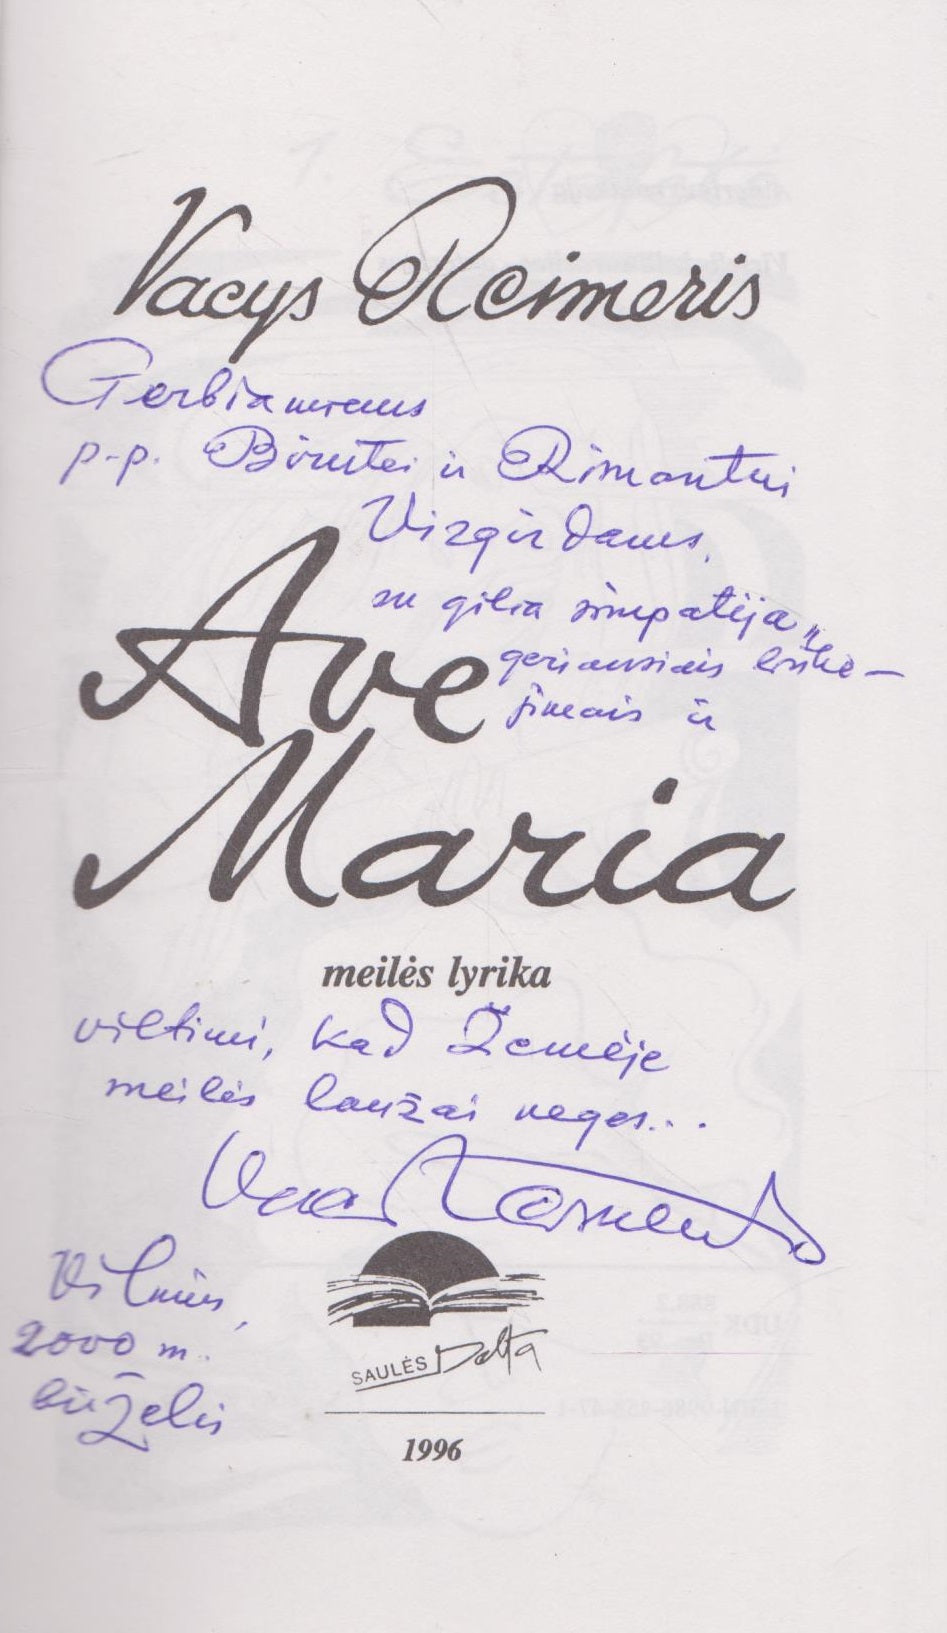 Vacys Reimeris
Gerbiamiems
p-p. Birutei ir Rimantui
Virgirdams,
su gilia simpatija,
geriausiais linkė-
jimais ir
Ave
Maria
meilės lyrika
viltimi, kad Žemėje
meilės laužai neges...
Vilnius,
2000 m.
birželis
SAULĖS Delta
1996